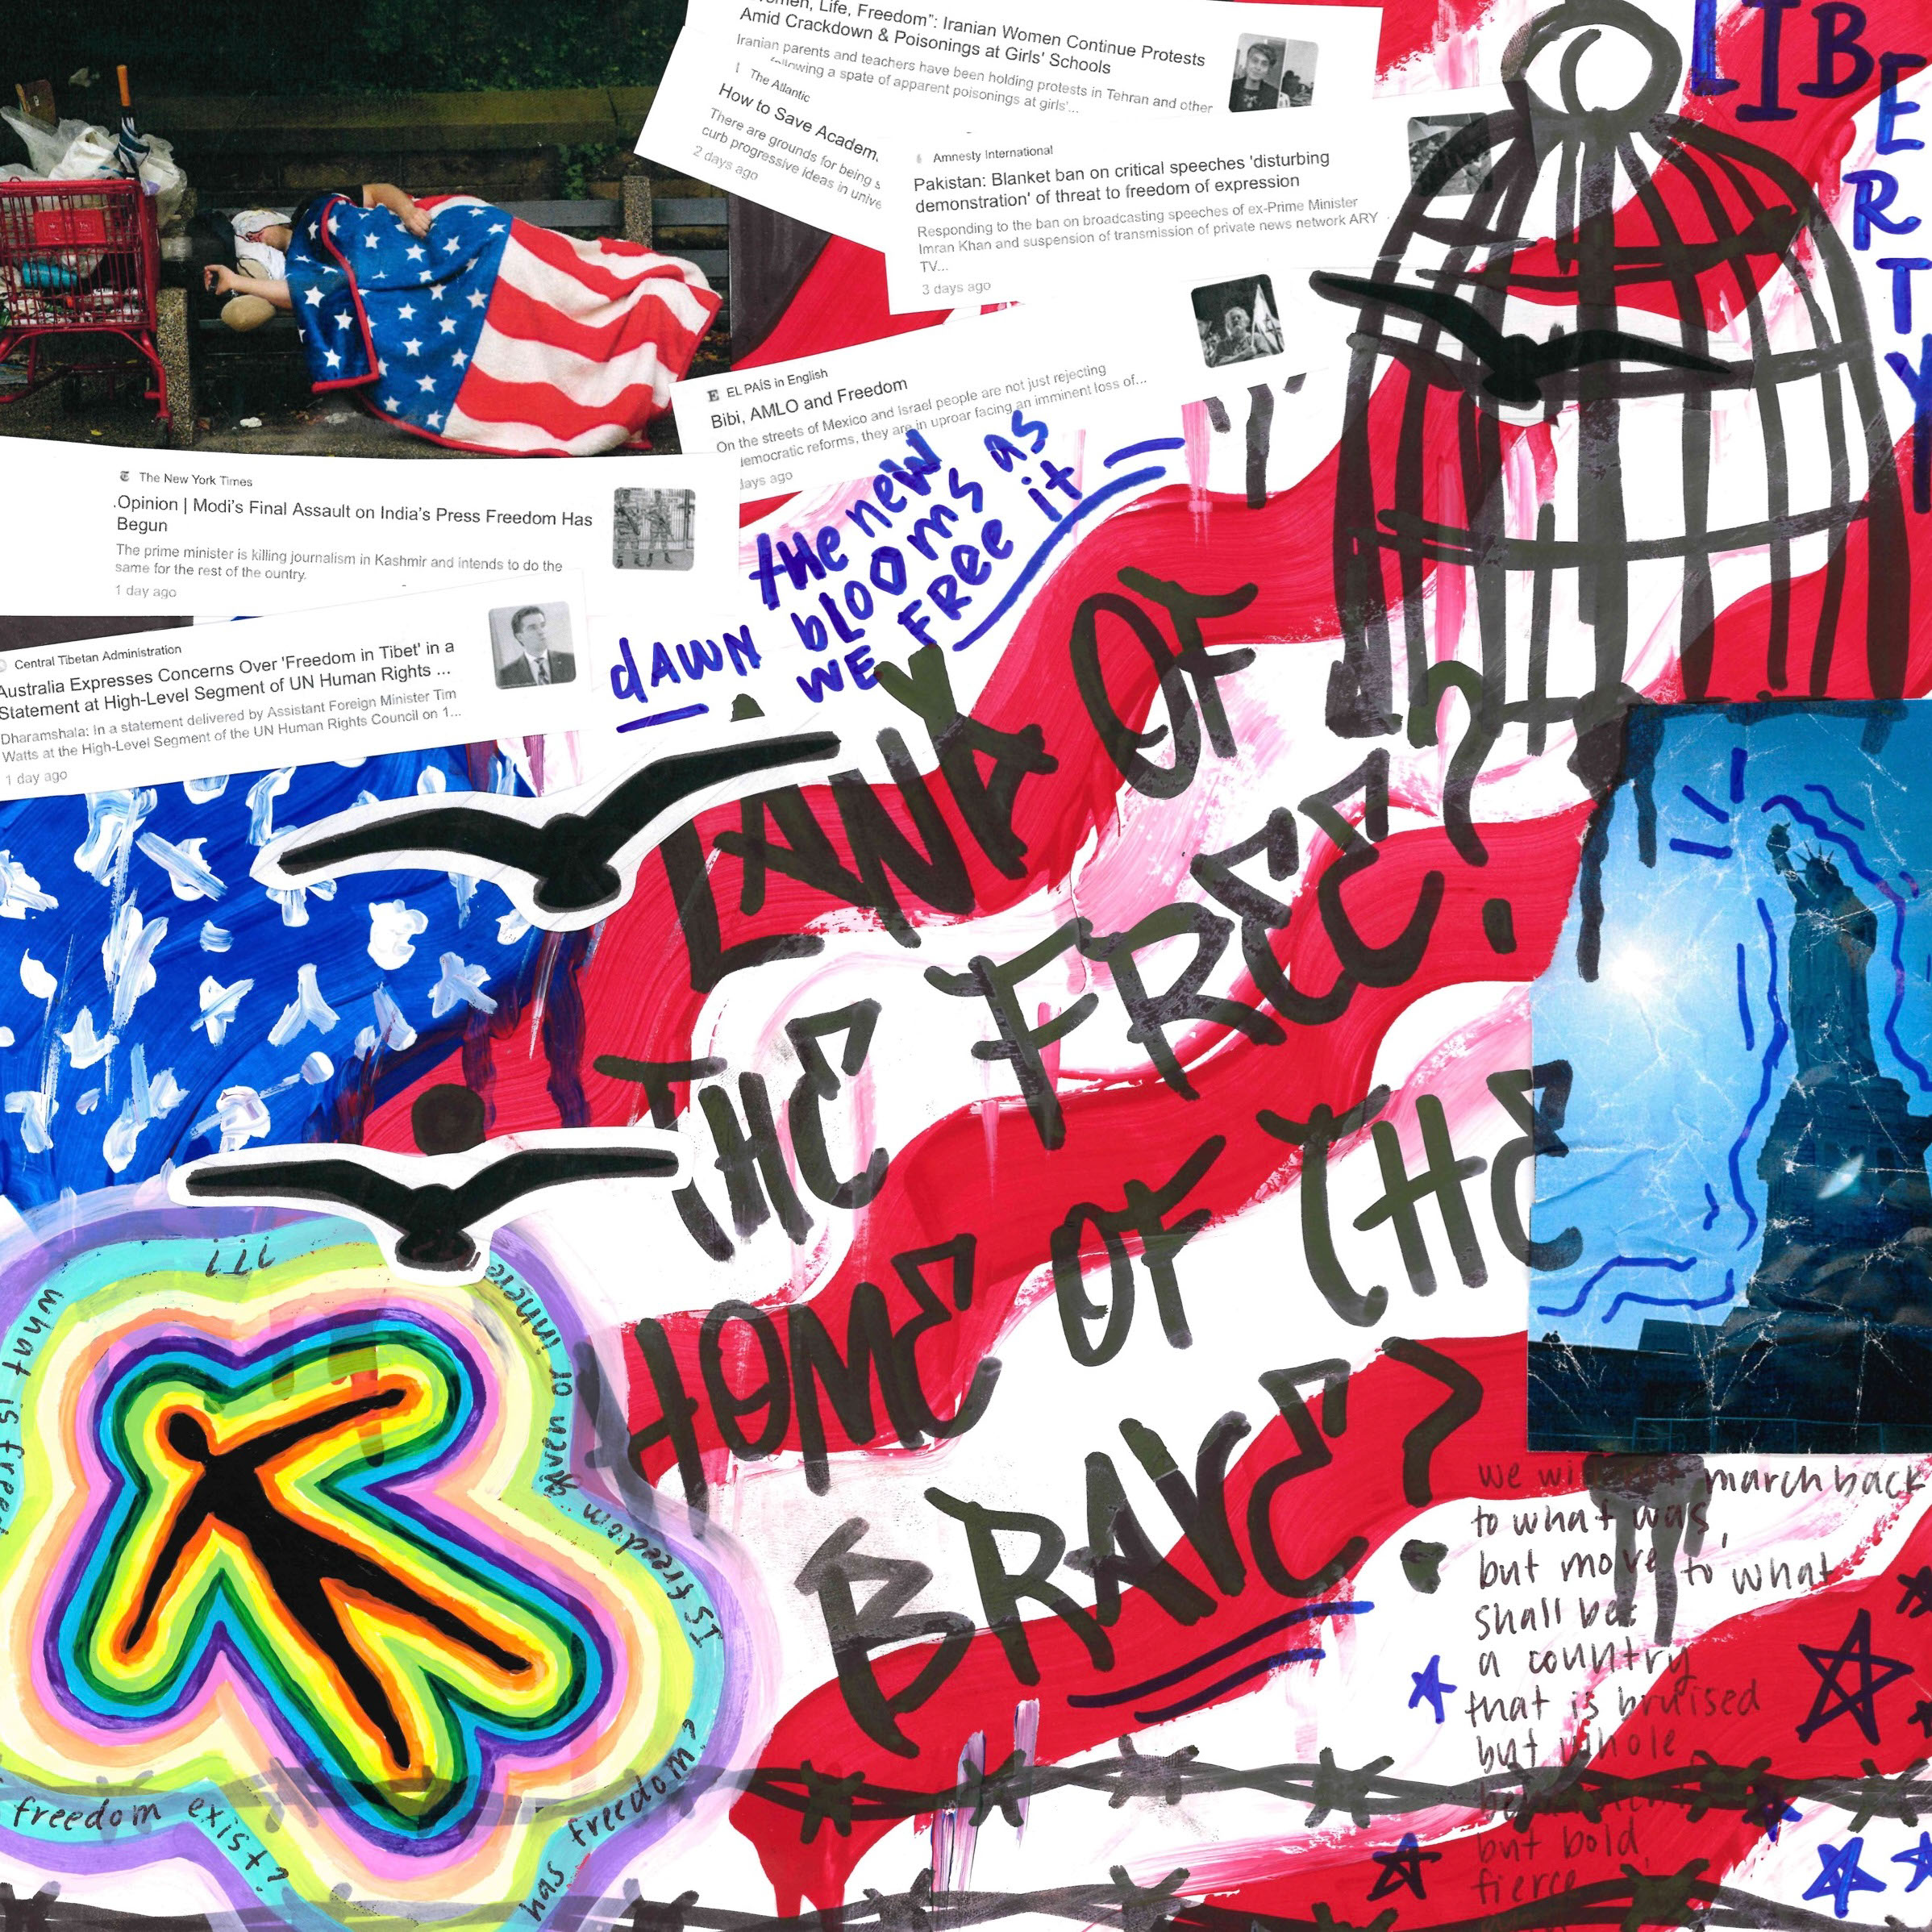 Women, Life, Freedom": Iranian Women Continue Protests
Amid Crackdown & Poisonings at Girls' Schools
Iranian parents and teachers have been holding protests in Tehran and other
following a spate of apparent poisonings at girls'...
The Atlantic
How to Save Academ.
There are grounds for being s
curb progressive ideas in unive
2 days ago
Amnesty International
Pakistan: Blanket ban on critical speeches 'disturbing
demonstration' of threat to freedom of expression
Responding to the ban on broadcasting speeches of ex-Prime Minister
Imran Khan and suspension of transmission of private news network ARY
TV...
3 days ago
LIBERTY
EL PAÍS in English
Bibi, AMLO and Freedom
On the streets of Mexico and Israel people are not just rejecting
democratic reforms, they are in uproar facing an imminent loss of...
days ago
The New York Times
.Opinion | Modi's Final Assault on India's Press Freedom Has
Begun
The prime minister is killing journalism in Kashmir and intends to do the
same for the rest of the ountry.
1 day ago
Central Tibetan Administration
Australia Expresses Concerns Over 'Freedom in Tibet' in a
Statement at High-Level Segment of UN Human Rights ...
Dharamshala: In a statement delivered by Assistant Foreign Minister Tim
Watts at the High-Level Segment of the UN Human Rights Council on 1...
1 day ago
the new
dawn blooms as
we free it
LAND OF
THE FREE?
HOME OF THE
BRAVE?
what is freed
Is freedom given or
has freedom?
freedom exist?
???
we marchback
to what was,
but move to what
shall be:
a country
that is bruised
but whole
but bold,
fierce